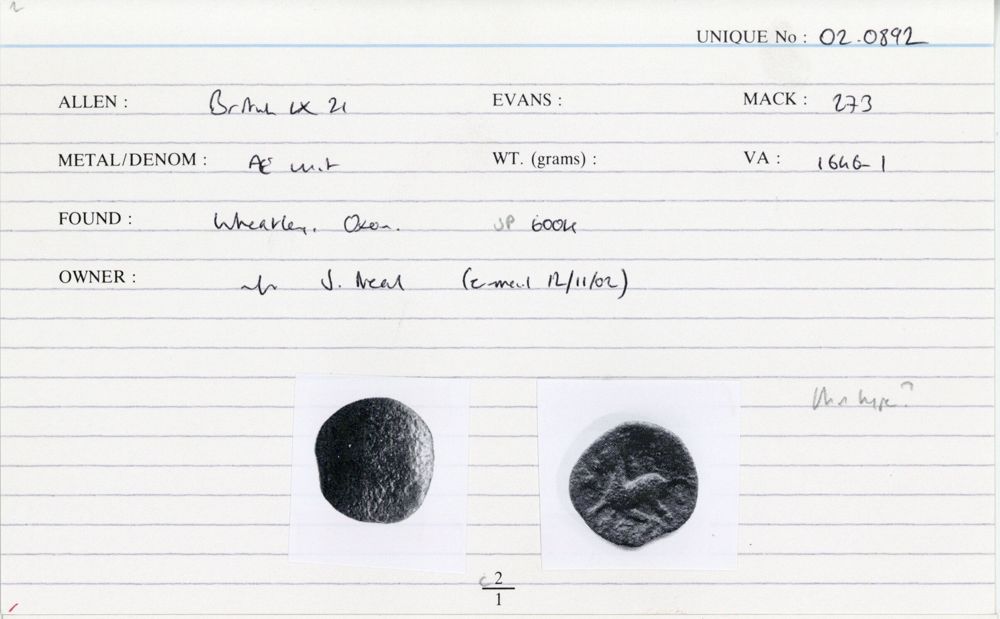 UNIQUE No : 02.0892
ALLEN : British LX 21 EVANS : MACK : 273
METAL/DENOM : Æ unit WT. (grams) : VA : 1646-1
FOUND : Wheatley, Oxon. SP 6004
OWNER : J. Neal (e-mail 12/11/02)
this type?
c 2
1